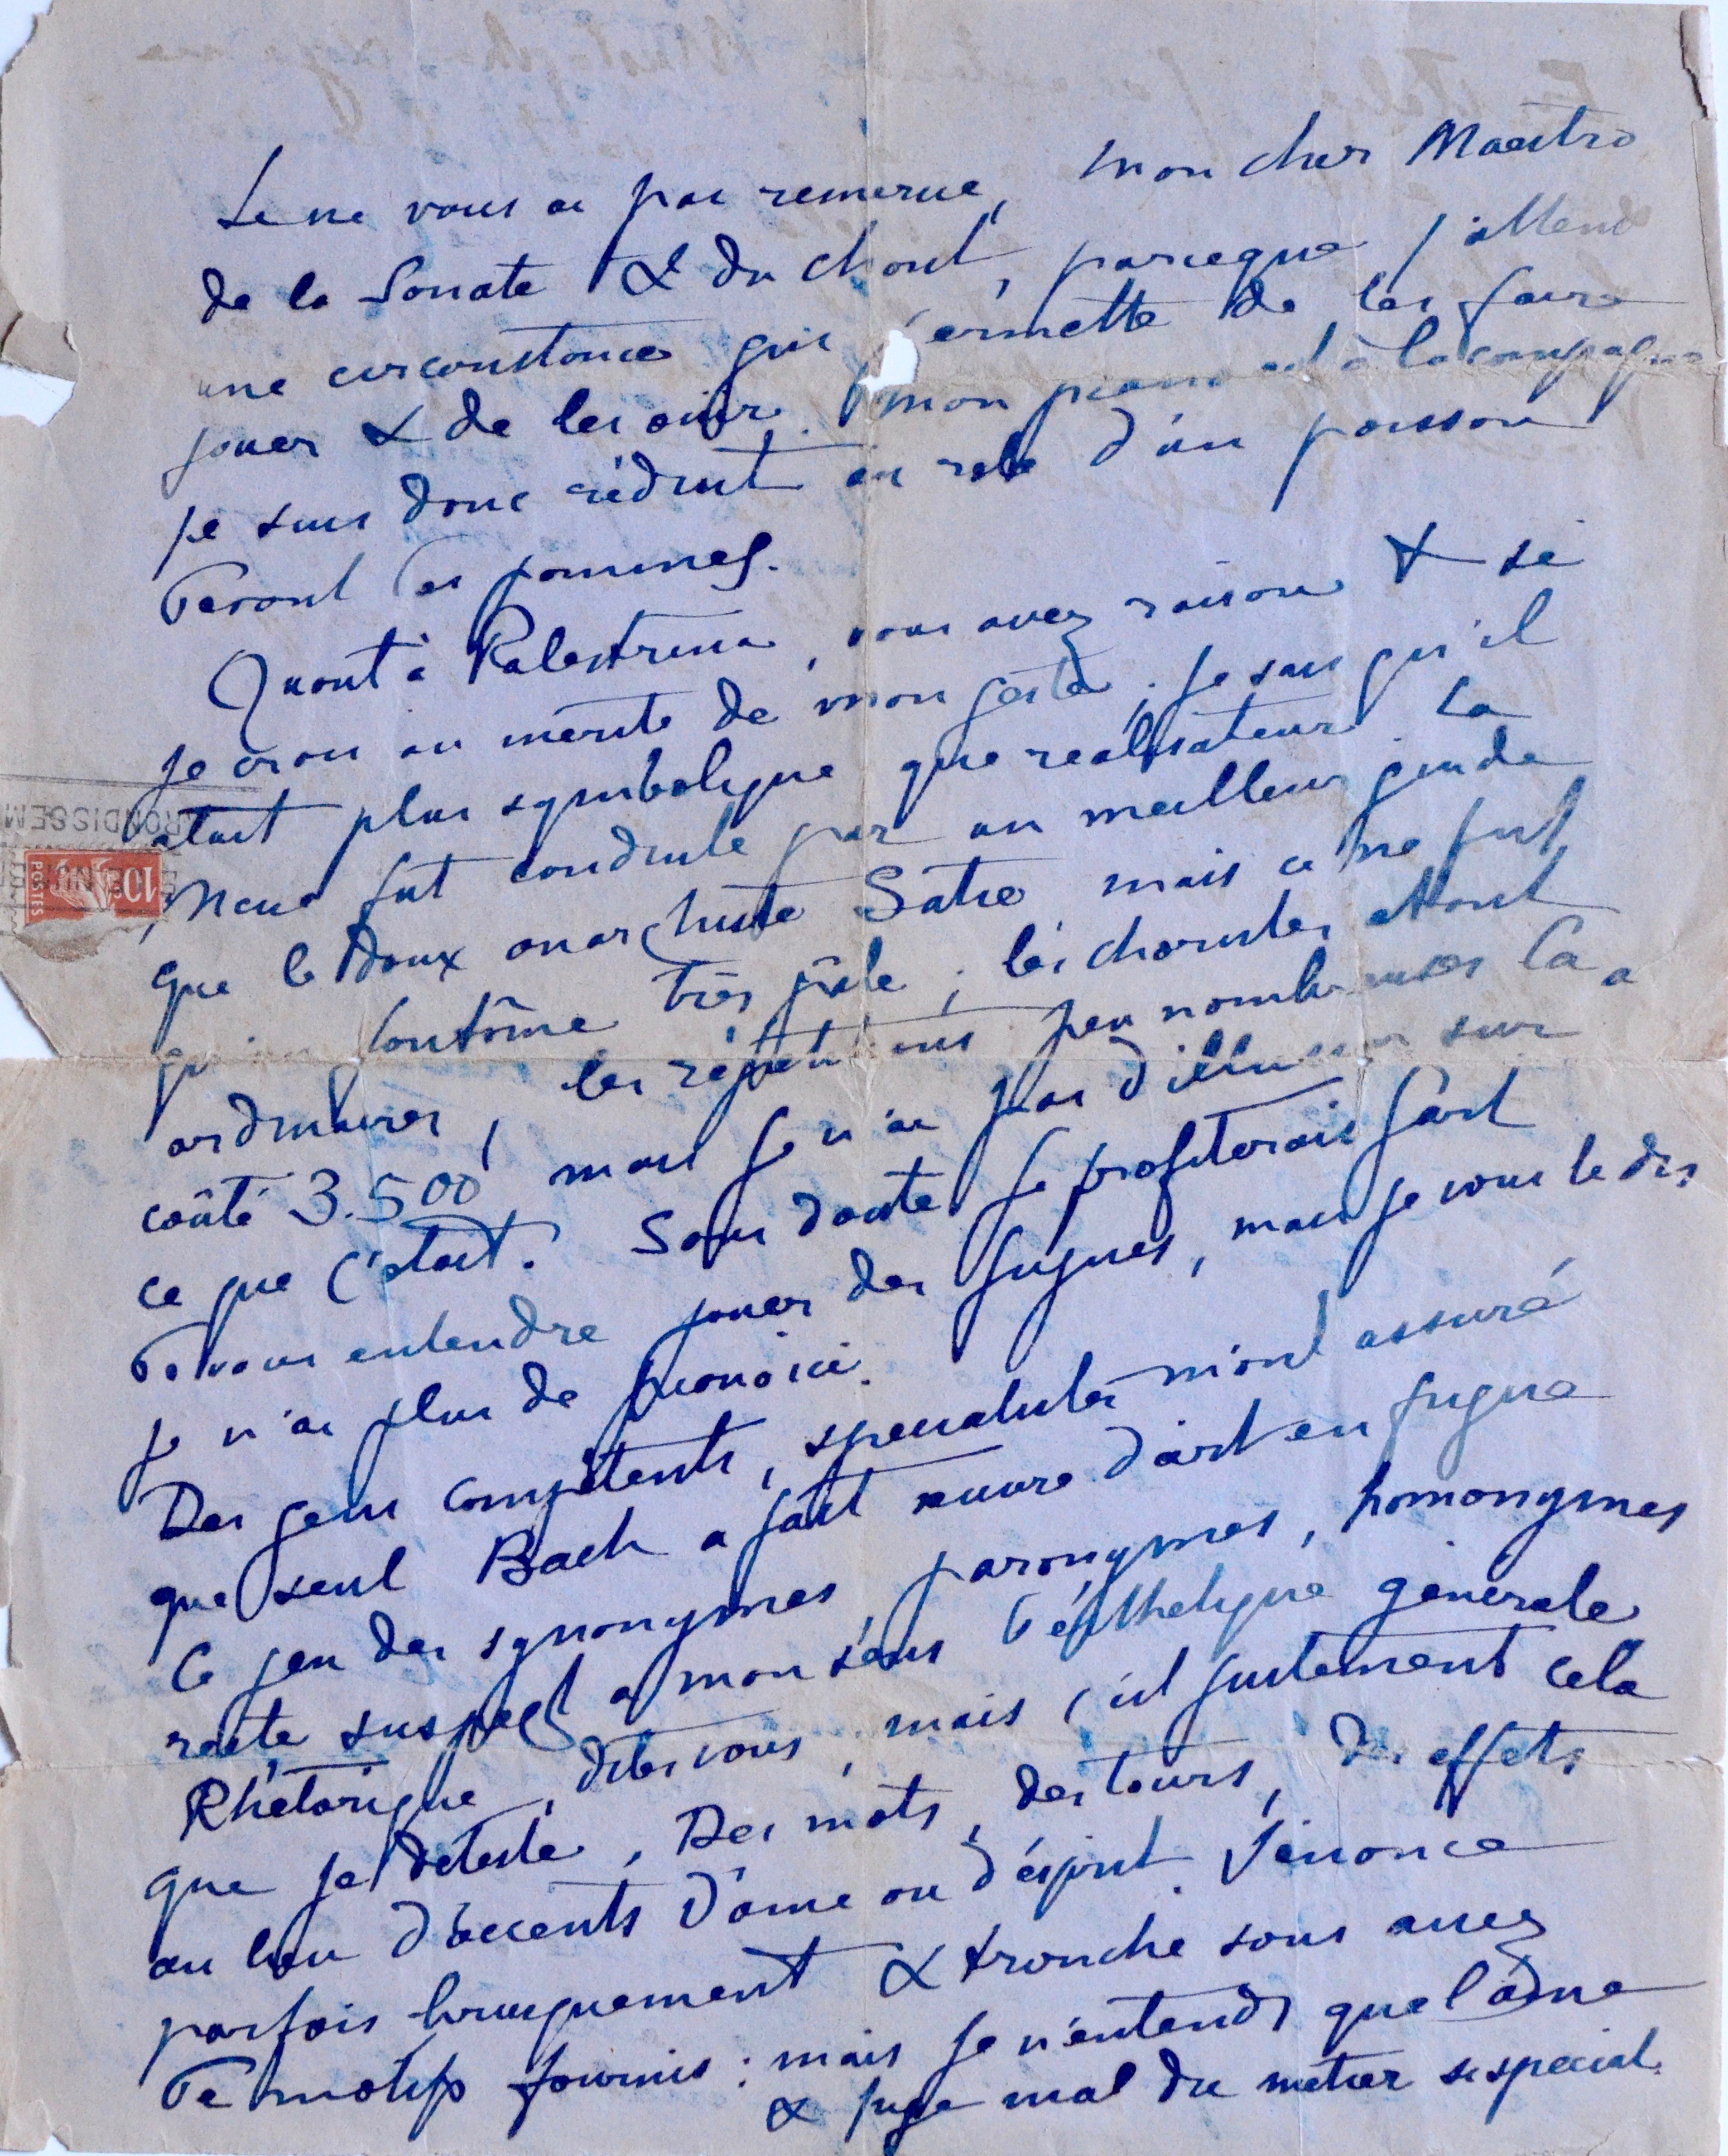 Je ne vous ai pas remercié, mon cher Maestro
de la Sonate & du chant, parceque j'attend
une circonstance qui permette de les faire
jouer & de les ouïr. mon piano est à la campagne
je suis donc réduit au role d'un poisson
devant les pommes.
Quant à Palestrina, vous avez raison & si
je crois au mérite de mon geste, je sais qu'il
etait plus symbolique que realisateur. La
Messe fut conduite par un meilleur guide
que le doux anarchiste Satie, mais ce ne fut
qu'un fantôme très pâle ; les choristes étant
ordinaires, les répétitions peu nombreuses Ca a
coûté 3.500 mais je n'ai pas d'illusion sur
ce que c'etait. Sans doute je profiterais fort
de vous entendre jouer des fugues, mais je vous le dis
je n'ai plus de piano ici.
Des gens compétents, specialistes m'ont assuré
que seul Bach a fait œuvre d'art en fugue
Ce jeu des synonymes, paronymes, homonymes
reste suspect à mon sens d'ésthetique générale
Rhétorique, dites vous, mais c'est justement cela
que je déteste, Des mots, des tours, des effets
au lieu d'accents d'ame ou d'ésprit. J'enonce
parfois brusquement & tranche sans assez
de motifs fournis : mais je n'entends que l'âme
& juge mal du metier si special.
ARRONDISSEM
POSTES
10c